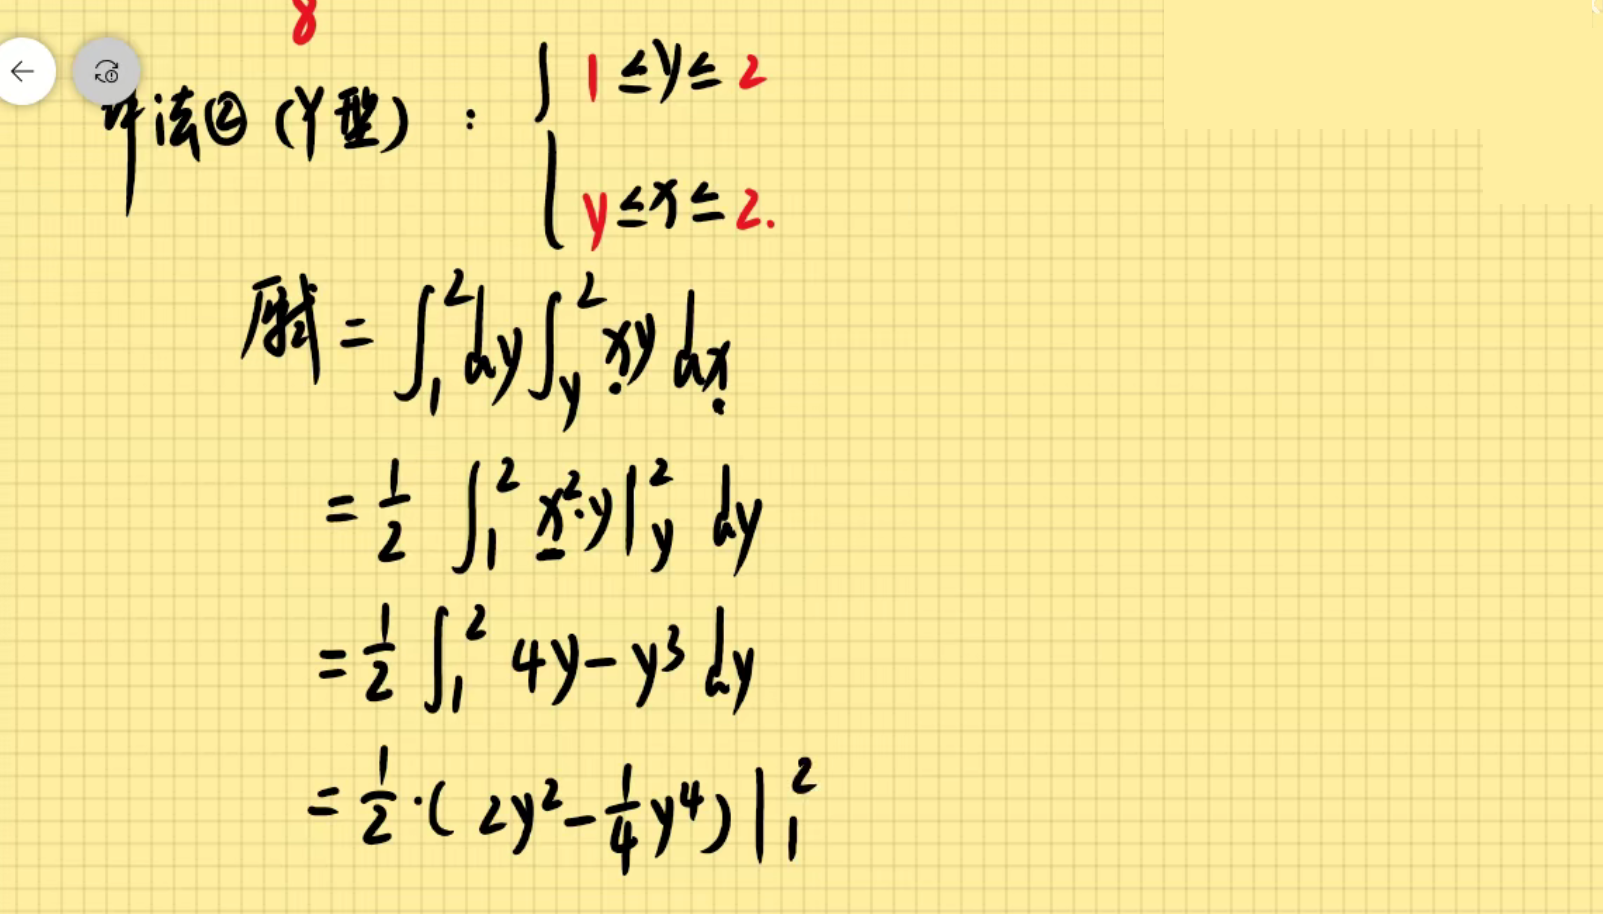 8
法② (Y型) : { 1 ≤ y ≤ 2
y ≤ x ≤ 2.
原式 = ∫₁² dy ∫_y² xy dx
= 1/2 ∫₁² x²·y |_y² dy
= 1/2 ∫₁² 4y - y³ dy
= 1/2 · ( 2y² - 1/4 y⁴ ) |₁²